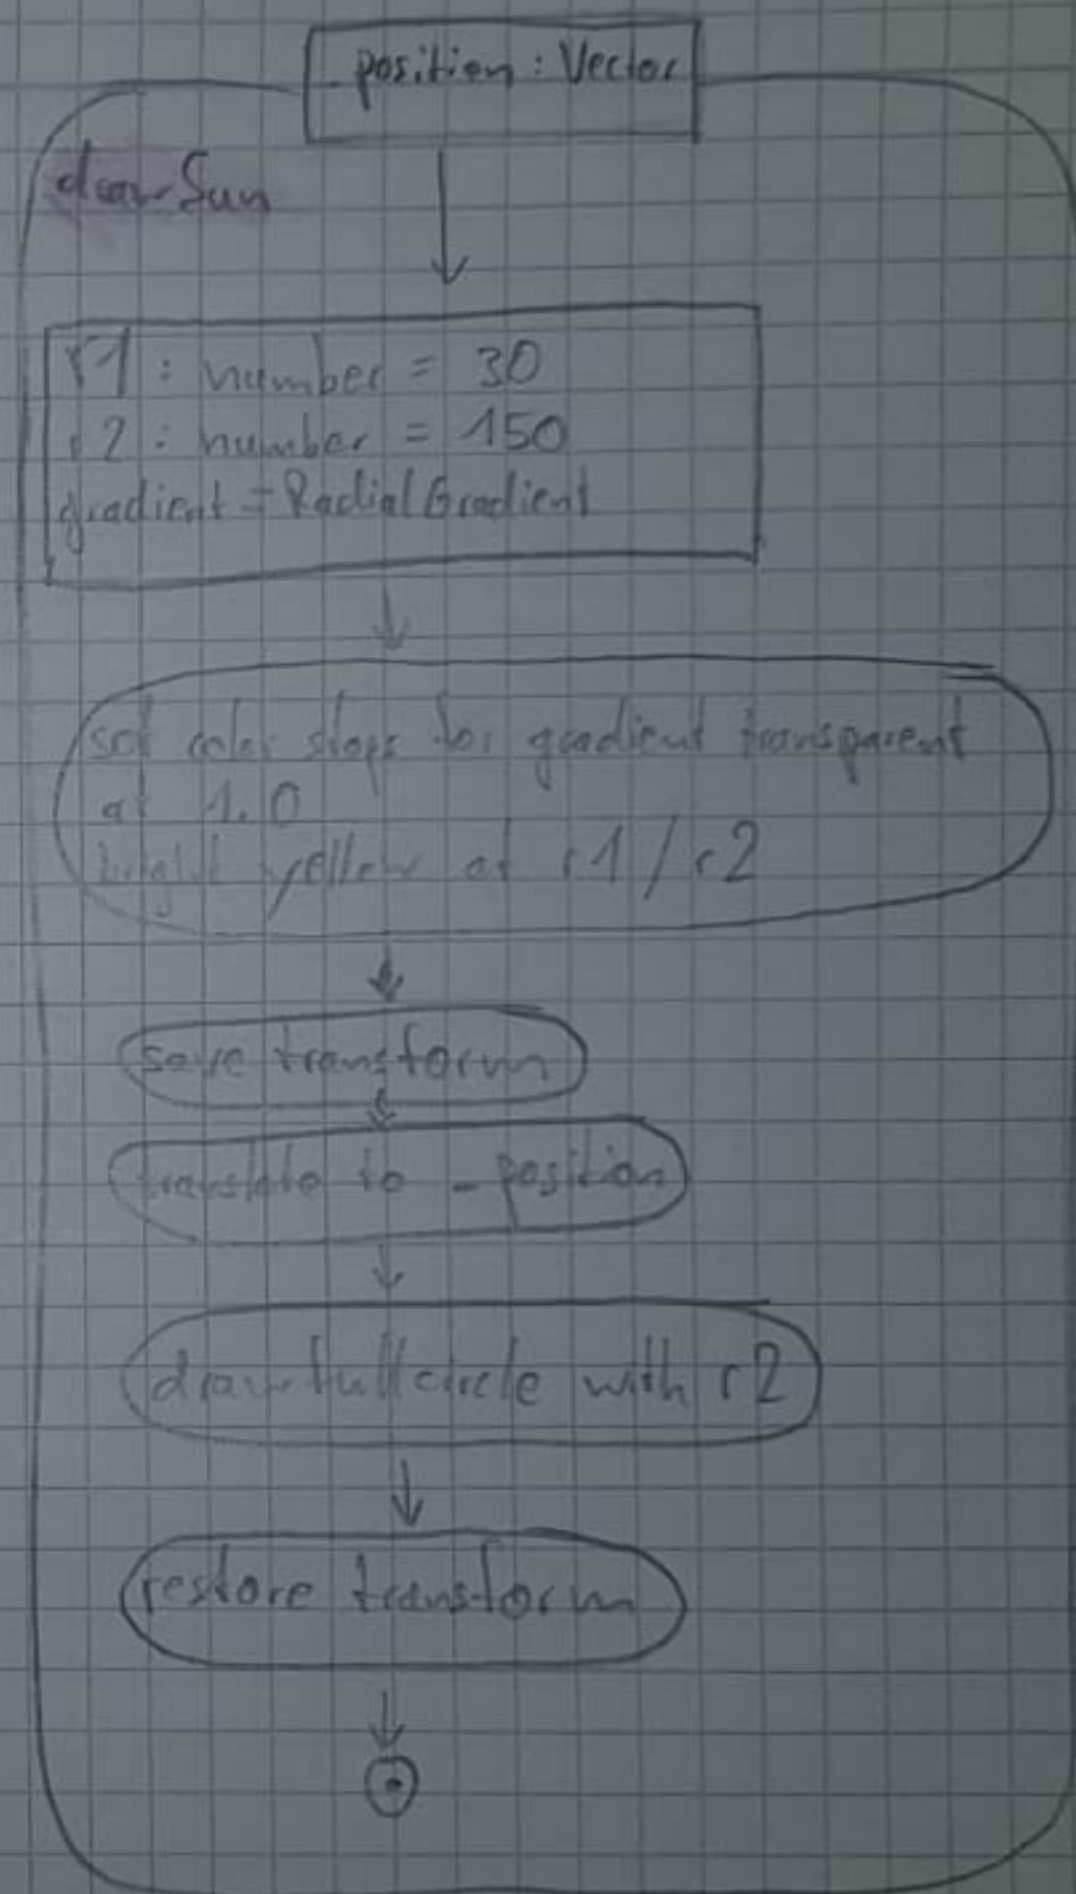 _position : Vector
drawSun
r1 : number = 30
r2 : number = 150
gradient = RadialGradient
set color stops for gradient transparent
at 1.0
bright yellow at r1 / r2
save transform
translate to _position
draw full circle with r2
restore transform